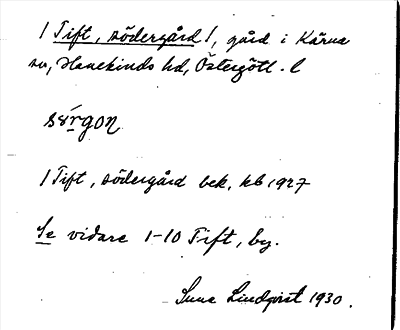 / Tift, södergård /, gård i Kärna
sn, Hanekinds hd, Östergötl. l
1 Tift, södergård bek. kb 1927
Se vidare 1-10 Tift, by.
Sune Lindqvist 1930.